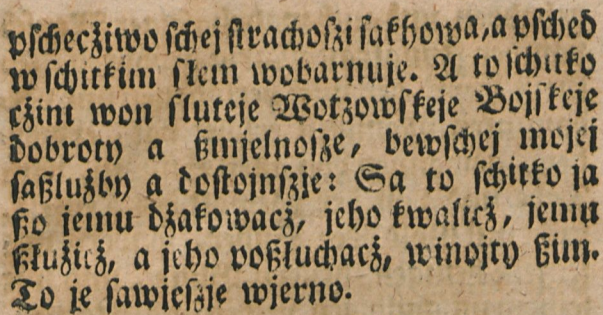 pſchecżiwo ſchej ſtrachoſzi ſakhowa, a pſched
w ſchitkim ſłem wobarnuje. A to ſchitko
cżini won ſluteje Wotzowſkeje Bojſkeje
dobroty a ßmjelnoſze, bewſchej mojej
ſaßlużby a doſtojnſzje: Sa to ſchitko ja
ßo jemu dżakowacż, jeho kwalicż, jemu
ßłużicż, a jeho poßłuchacż, winojty ßim.
To je ſawjeſzje wjerno.